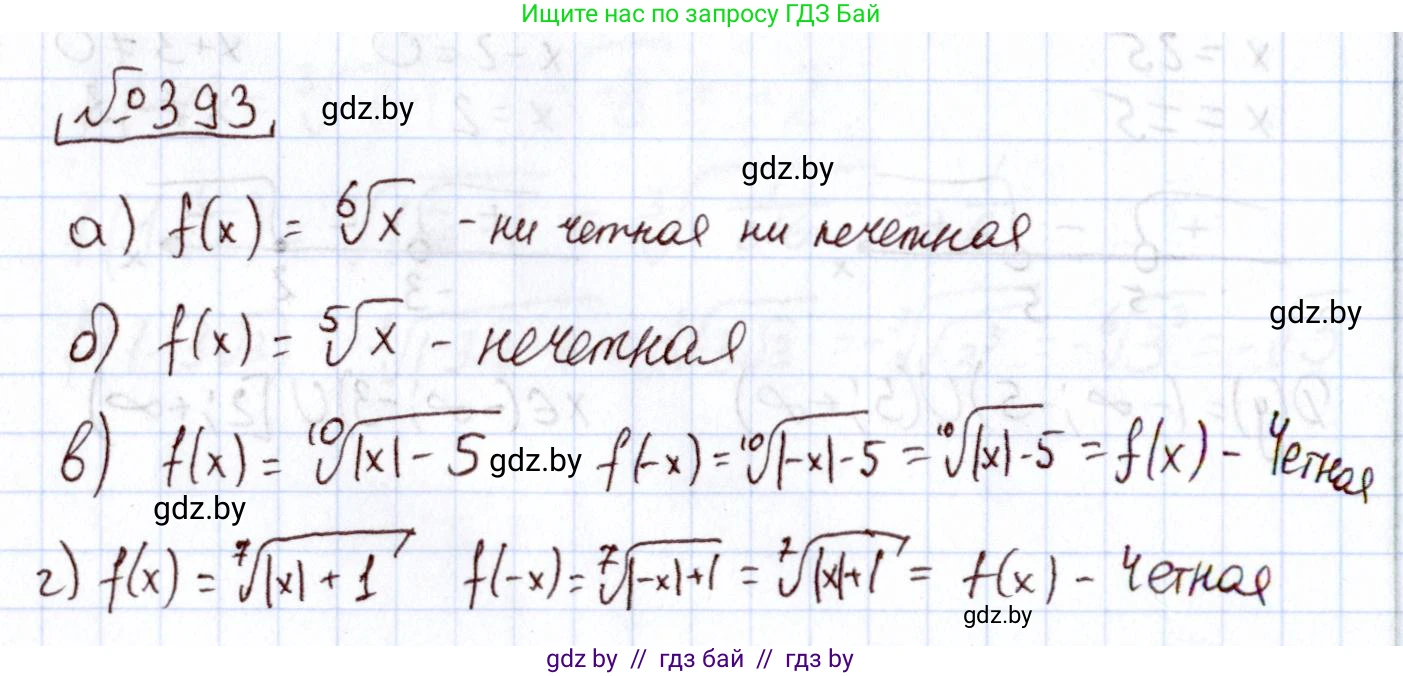 Ищите нас по запросу ГДЗ Бай
№393 gdz.by
gdz.by
а) f(x) = ⁶√x - ни четная ни нечетная
gdz.by
б) f(x) = ⁵√x - нечетная
в) f(x) = ¹⁰√(|x| - 5) gdz.by f(-x) = ¹⁰√(|-x| - 5) = ¹⁰√(|x| - 5) = f(x) - Четная
gdz.by
г) f(x) = ⁷√(|x| + 1) f(-x) = ⁷√(|-x| + 1) = ⁷√(|x| + 1) = f(x) - Четная
gdz.by
gdz by // гдз бай // гдз by